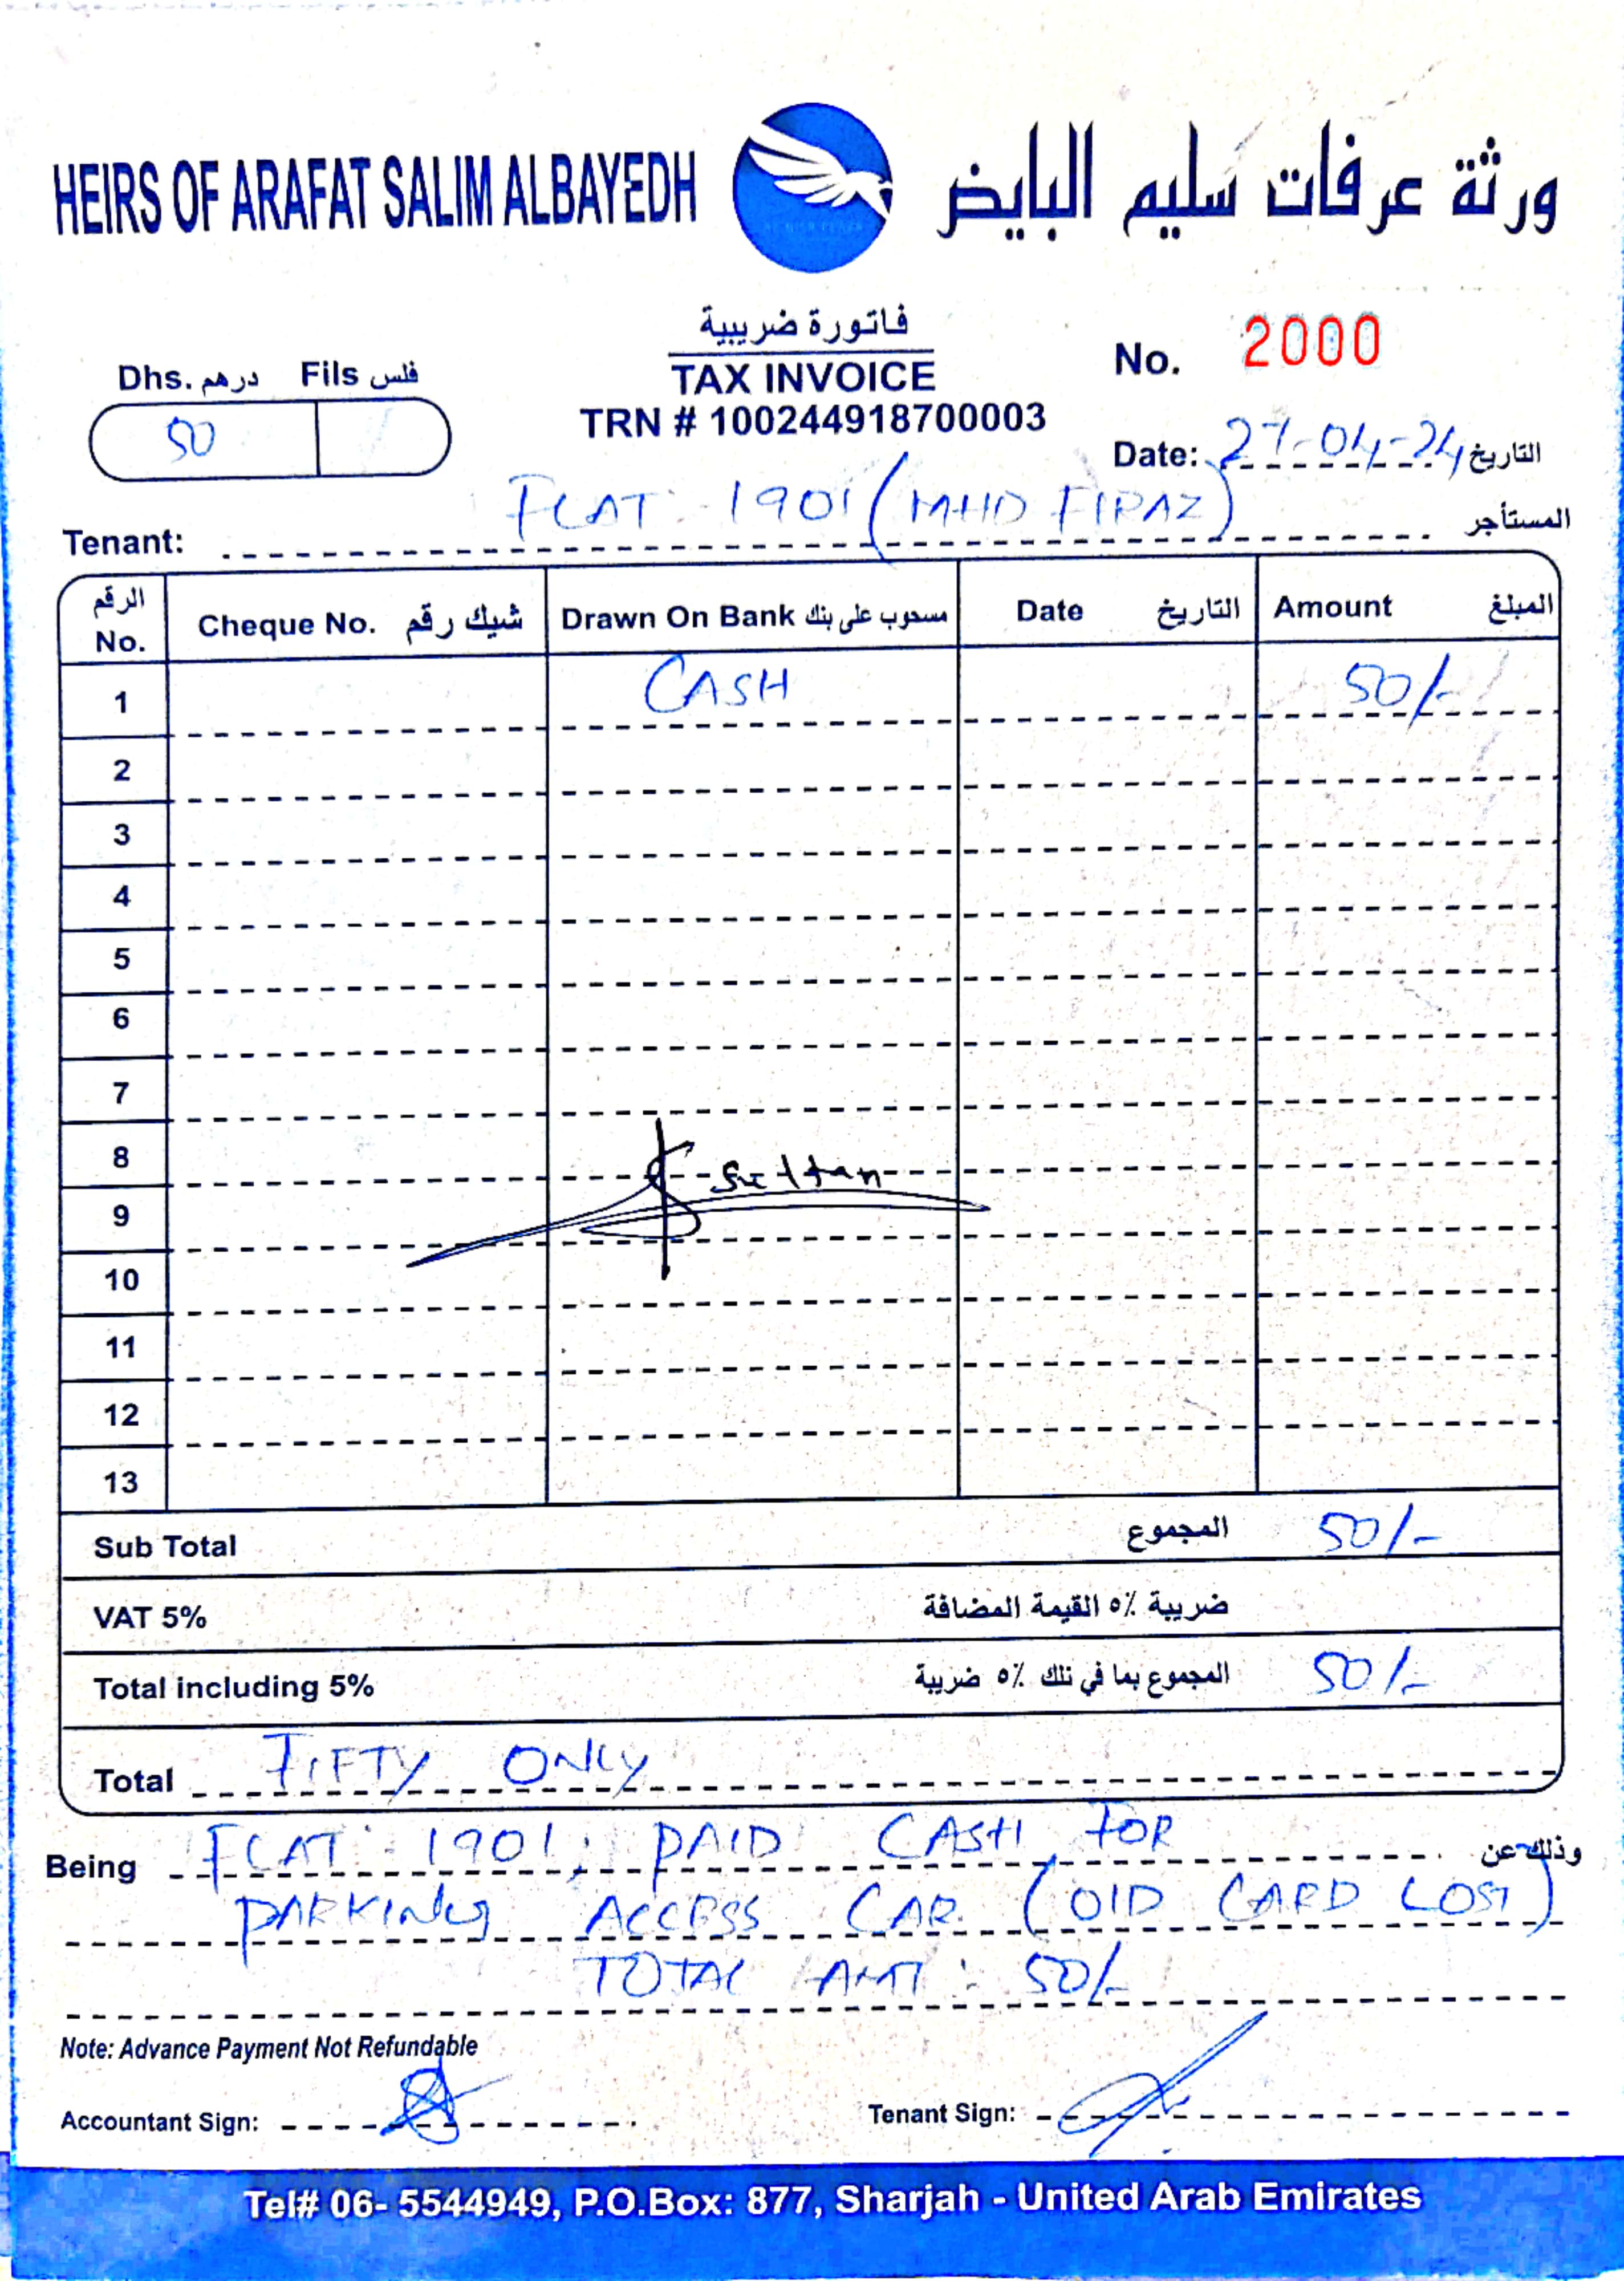 HEIRS OF ARAFAT SALIM ALBAYEDH ورثة عرفات سليم البايض
فاتورة ضريبية
TAX INVOICE
TRN # 100244918700003
Dhs. درهم Fils فلس
50
No. 2000
Date: 27-04-24 التاريخ
Tenant: FLAT 1901 (MHD FIRAZ) المستأجر
الرقم No. Cheque No. شيك رقم Drawn On Bank مسحوب على بنك Date التاريخ Amount المبلغ
1 CASH 50/-
2
3
4
5
6
7
8 Sultan
9
10
11
12
13
Sub Total المجموع 50/-
VAT 5% ضريبة ٥٪ القيمة المضافة
Total including 5% المجموع بما في تلك ٥٪ ضريبة 50/-
Total FIFTY ONLY
Being FLAT 1901, PAID CASH FOR وذلك عن
PARKING ACCESS CAR (OLD CARD LOST)
TOTAL AMT: 50/-
Note: Advance Payment Not Refundable
Accountant Sign: Tenant Sign:
Tel# 06- 5544949, P.O.Box: 877, Sharjah - United Arab Emirates